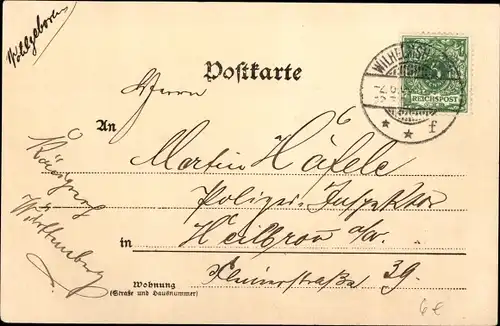 Wohlgeboren
Postkarte
Herrn
An
Martin Häfele
Polizei-Inspektor
in Heilbron a/N.
Wohnung
(Straße und Hausnummer)
39.
Württemberg
WILHELMS
f
REICHSPOST
6€